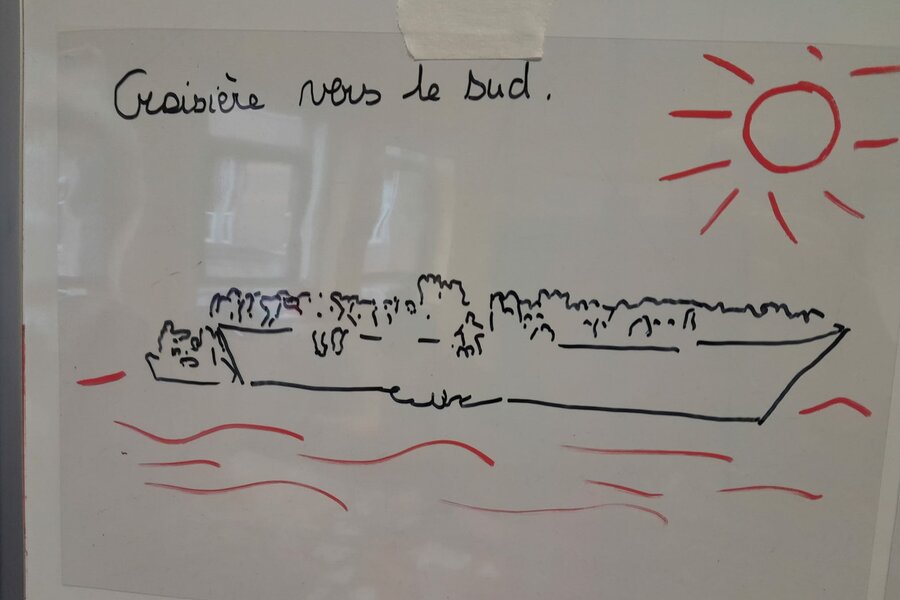 Croisière vers le sud.